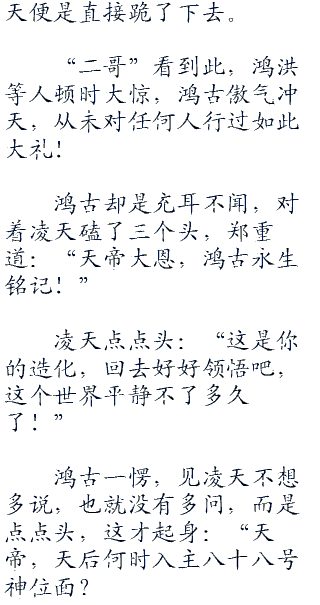 天便是直接跪了下去。
“二哥”看到此，鸿洪
等人顿时大惊，鸿古傲气冲
天，从未对任何人行过如此
大礼！
鸿古却是充耳不闻，对
着凌天磕了三个头，郑重
道：“天帝大恩，鸿古永生
铭记！”
凌天点点头：“这是你
的造化，回去好好领悟吧，
这个世界平静不了多久
了！”
鸿古一愣，见凌天不想
多说，也就没有多问，而是
点点头，这才起身：“天
帝，天后何时入主八十八号
神位面？